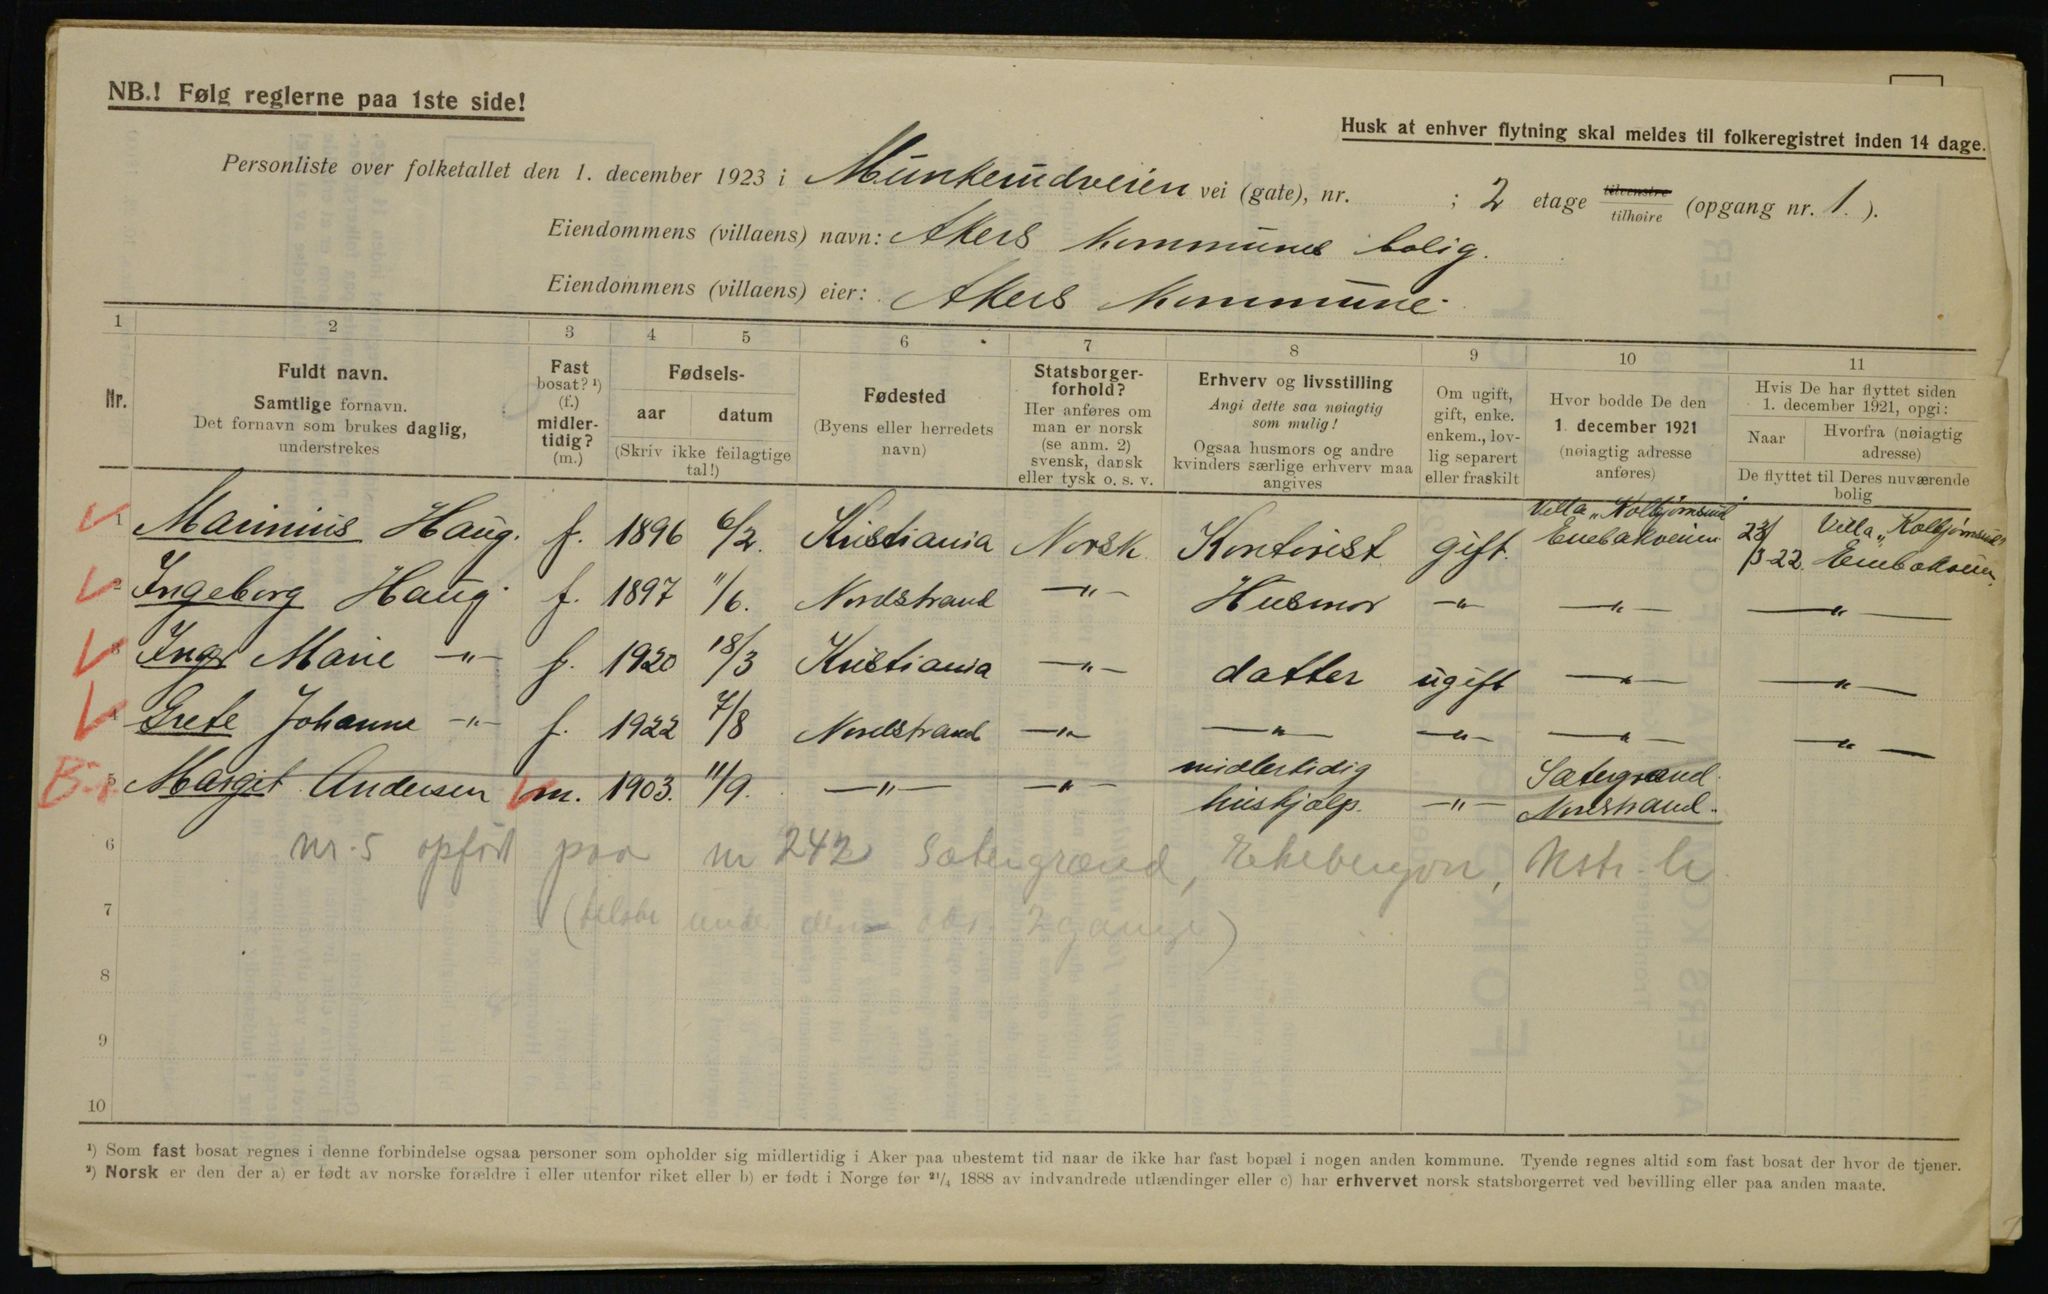 NB.! Følg reglerne paa 1ste side!
Husk at enhver flytning skal meldes til folkeregistret inden 14 dage.
Personliste over folketallet den 1. december 1923 i Munkerudveien vei (gate), nr. ; 2 etage tilvenstre tilhøire (opgang nr. 1. ).
Eiendommens (villaens) navn: Akers kommunes bolig.
Eiendommens (villaens) eier: Akers kommune.
1 2 3 4 5 6 7 8 9 10 11
Nr.
Fuldt navn.
Samtlige fornavn.
Det fornavn som brukes daglig,
understrekes
Fast
bosat? ¹)
(f.)
midler-
tidig?
(m.)
Fødsels-
aar datum
(Skriv ikke feilagtige
tal!)
Fødested
(Byens eller herredets
navn)
Statsborger-
forhold?
Her anføres om
man er norsk
(se anm. 2)
svensk, dansk
eller tysk o. s. v.
Erhverv og livsstilling
Angi dette saa nøiagtig
som mulig!
Ogsaa husmors og andre
kvinders særlige erhverv maa
angives
Om ugift,
gift, enke.
enkem., lov-
lig separert
eller fraskilt
Hvor bodde De den
1. december 1921
(nøiagtig adresse
anføres)
Hvis De har flyttet siden
1. december 1921, opgi:
Naar
Hvorfra (nøiagtig
adresse)
De flyttet til Deres nuværende
bolig
1 Marinius Haug. f. 1896 6/2. Kristiania Norsk. Kontorist. gift. Villa „Kolbjørnsund" Enebakveien 23/3-22. Villa „Kolbjørnsund" Enebakveien.
2 Ingeborg Haug. f. 1897 11/6. Nordstrand —"— Husmor —"— —"— —"—
3 Inger Marie —"— f. 1920 18/3 Kristiania —"— datter ugift —"— —"—
4 Grete Johanne —"— f. 1922 7/8 Nordstrand —"— —"— —"— —"— —"—
5 Margit Andersen m. 1903. 11/9. —"— —"— midlertidig hushjælp. —"— Sætergrænd. Nordstrand.
6 nr. 5 opført paa nr 242 Sætergrænd, Nstr.
7 ( 2 gange)
8
9
10
¹) Som fast bosat regnes i denne forbindelse ogsaa personer som opholder sig midlertidig i Aker paa ubestemt tid naar de ikke har fast bopæl i nogen anden kommune. Tyende regnes altid som fast bosat der hvor de tjener.
²) Norsk er den der a) er født av norske forældre i eller utenfor riket eller b) er født i Norge før 21/4 1888 av indvandrede utlændinger eller c) har erhvervet norsk statsborgerret ved bevilling eller paa anden maate.